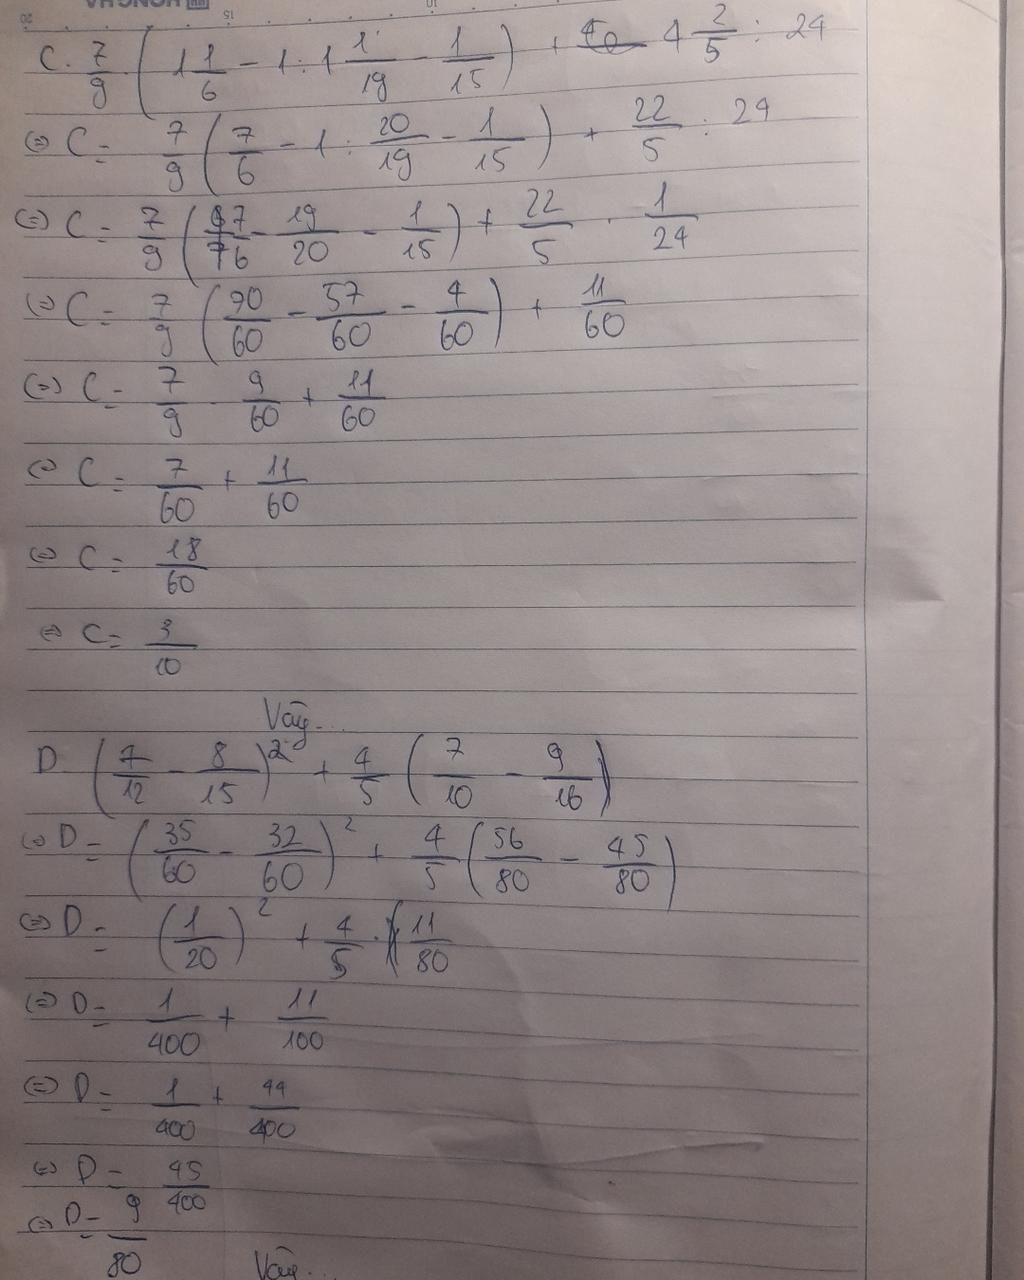 20 15 10
C. 7/9 (1 1/6 - 1 : 1 1/19 - 1/15) + 4 2/5 : 24
(=) C = 7/9 (7/6 - 1 : 20/19 - 1/15) + 22/5 : 24
(=) C = 7/9 (7/6 - 19/20 - 1/15) + 22/5 . 1/24
(=) C = 7/9 (70/60 - 57/60 - 4/60) + 11/60
(=) C = 7/9 . 9/60 + 11/60
(=) C = 7/60 + 11/60
(=) C = 18/60
(=) C = 3/10
Vậy...
D (7/12 - 8/15)² + 4/5 (7/10 - 9/16)
(=) D = (35/60 - 32/60)² + 4/5 (56/80 - 45/80)
(=) D = (1/20)² + 4/5 . 11/80
(=) D = 1/400 + 11/100
(=) D = 1/400 + 44/400
(=) D = 45/400
(=) D = 9/80
Vậy...